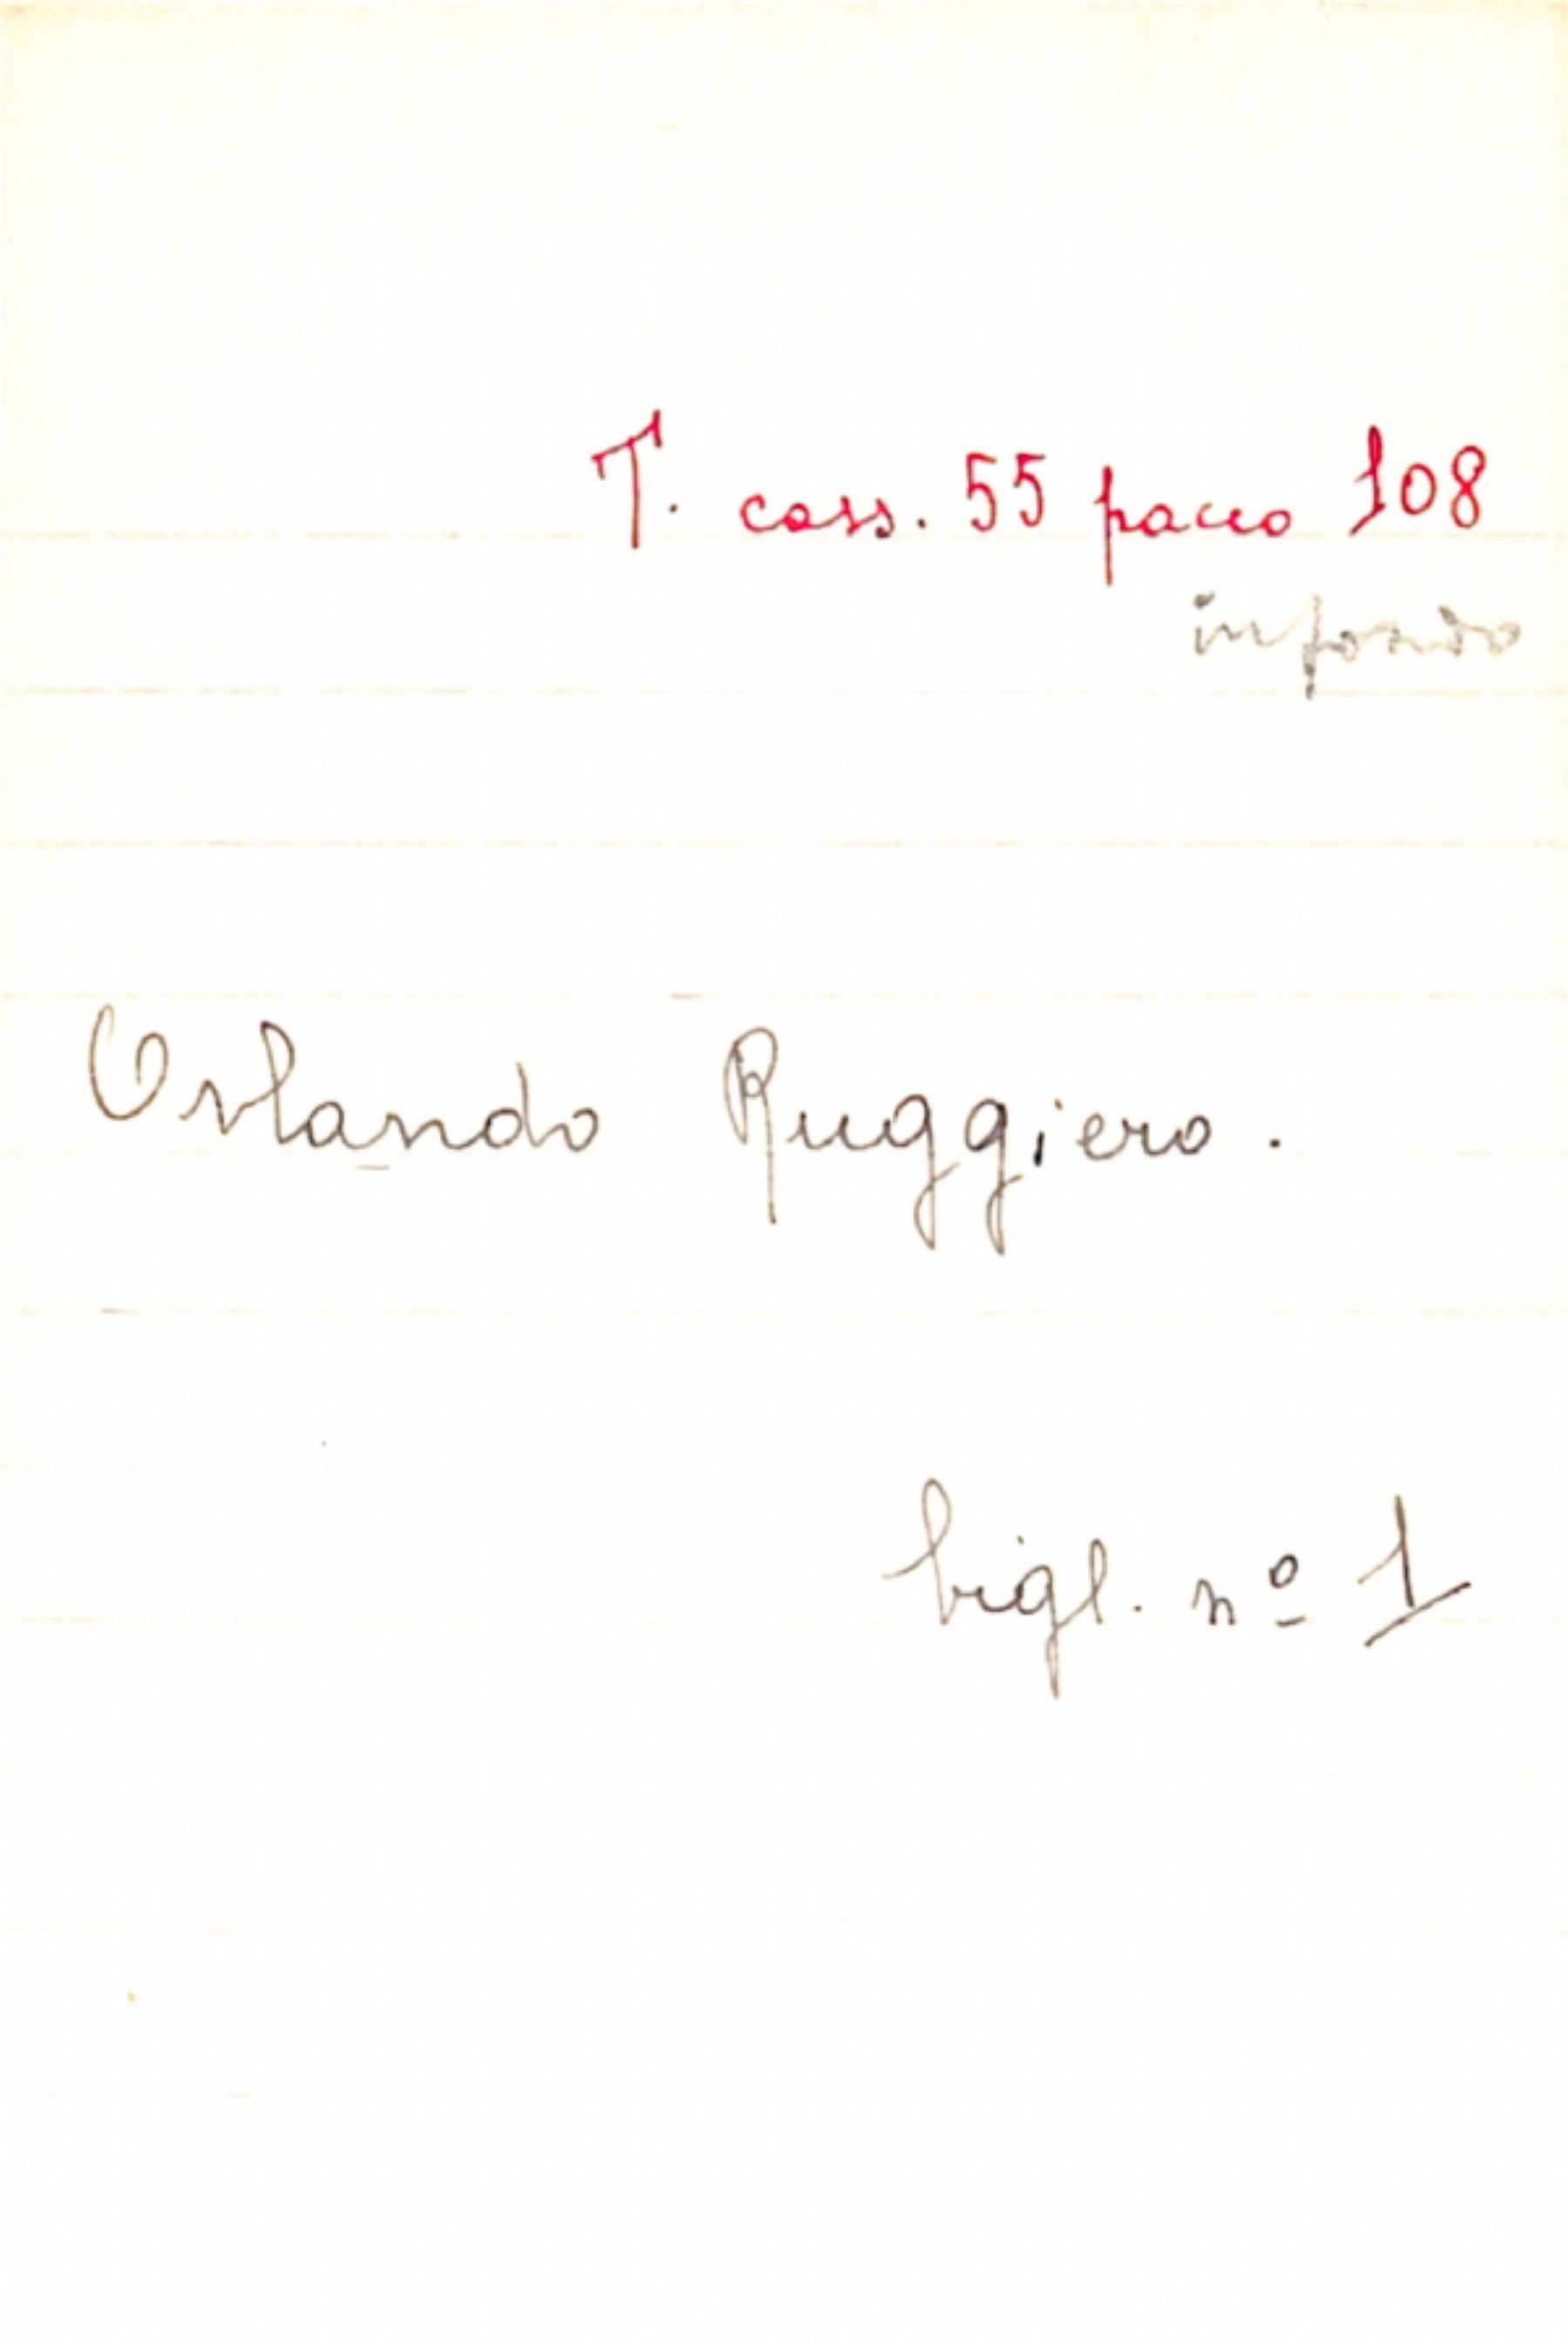 T. cass. 55 pacco 108
in fondo
Orlando Ruggiero.
bigl. nº 1